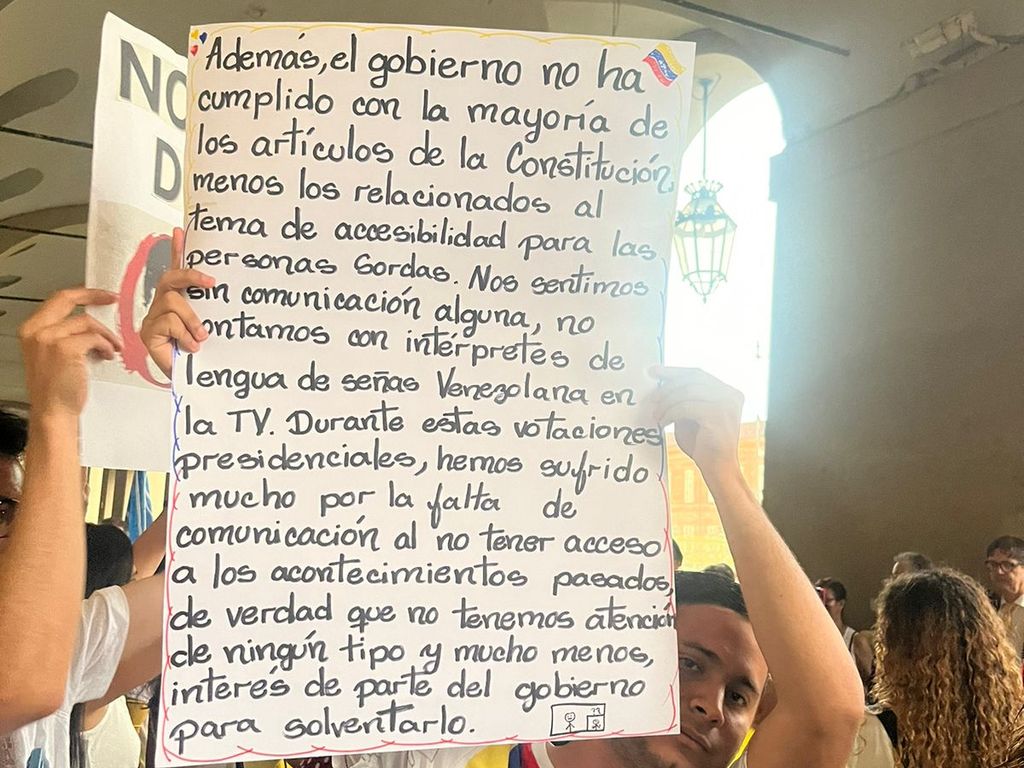 NO
D
Además, el gobierno no ha
cumplido con la mayoría de
los artículos de la Constitución,
menos los relacionados al
tema de accesibilidad para las
personas Sordas. Nos sentimos
sin comunicación alguna, no
ontamos con intérpretes de
lengua de señas Venezolana en
la TV. Durante estas votaciones
presidenciales, hemos sufrido
mucho por la falta de
comunicación al no tener acceso
a los acontecimientos pasados,
de verdad que no tenemos atención
de ningún tipo y mucho menos,
interés de parte del gobierno
para solventarlo.